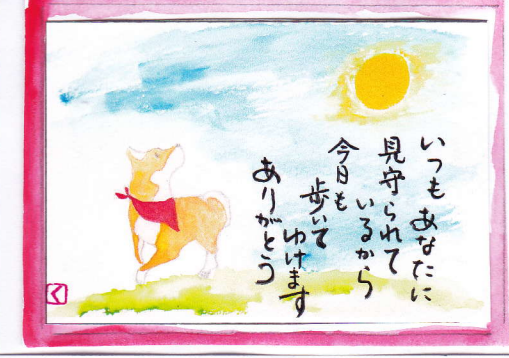 いつもあなたに
見守られて
いるから
今日も
歩いて
ゆけます
ありがとう
く